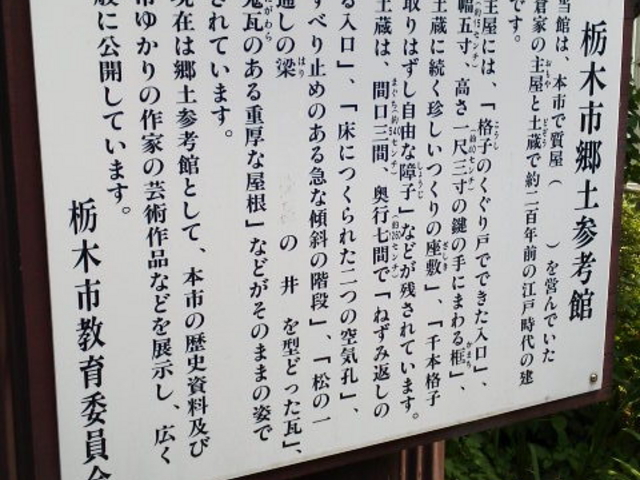 栃木市郷土参考館
当館は、本市で質屋（　　）を営んでいた
倉家の主屋と土蔵で約二百年前の江戸時代の建
です。
主屋には、「格子のくぐり戸でできた入口」、
幅五寸、高さ一尺三寸の鍵の手にまわる框」、
土蔵に続く珍しいつくりの座敷」、「千本格子
取りはずし自由な障子」などが残されています。
土蔵は、間口三間、奥行七間で「ねずみ返しの
る入口」、「床につくられた二つの空気孔」、
すべり止めのある急な傾斜の階段」、「松の一
通しの梁　　の井　を型どった瓦」、
鬼瓦のある重厚な屋根」などがそのままの姿で
されています。
現在は郷土参考館として、本市の歴史資料及び
市ゆかりの作家の芸術作品などを展示し、広く
般に公開しています。
栃木市教育委員会